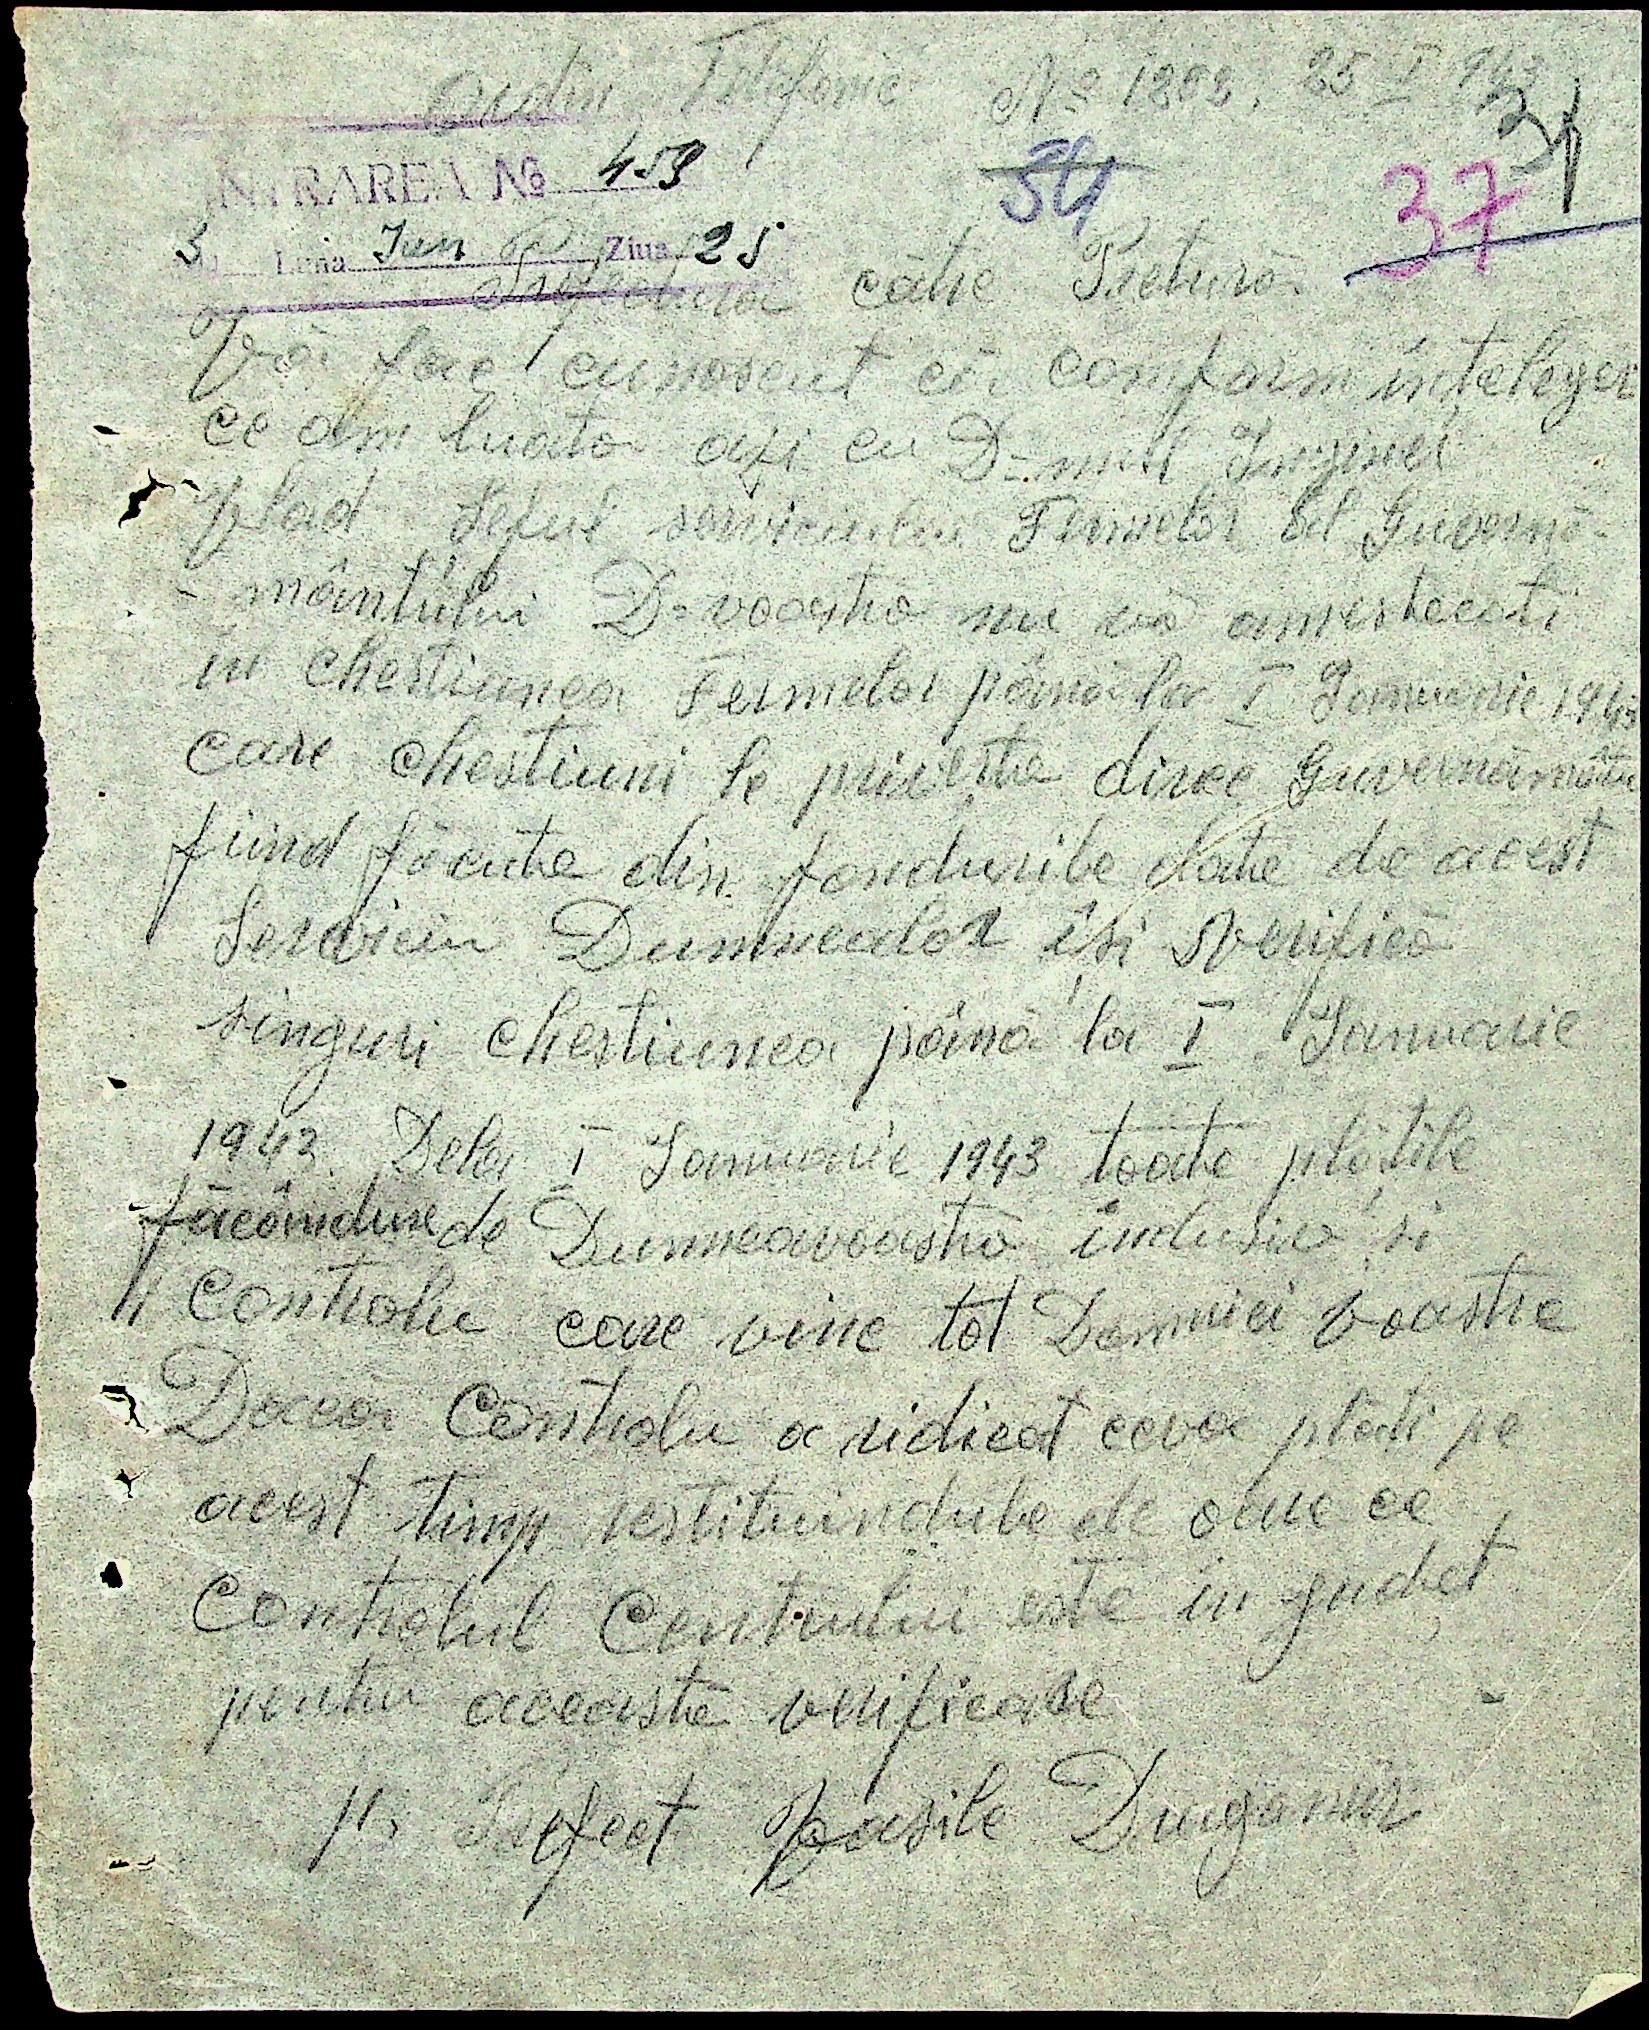 Ordin Telefonic No 1202, 25 I 943
31
INTRAREA No 459
34
37
3 Luna Ian Ziua 25
Prefectura către Pretură.
Vă fac cunoscut că conform înțeleger
ce am luata azi cu D-nul Inginer
Vlad Șeful serviciului Fermelor al Guvernă-
-mântului D-voastră nu vă amestecati
in chestiunea Fermelor până la I Ianuarie 1943
care chestiuni le priveste direc Guvernământu
fiind făcute din fondurile date de acest
Serviciu Dumnealor își verifică
singuri chestiunea până la I Ianuarie
1943. Dela I Ianuarie 1943 toate plătile
făcânduse de Dumneavoastră inclusiv si
Controlu care vine tot Domniei voastre
Dacă Controlu a ridicat ceva plati pe
acest timp restituindule de oare ce
Controlul Centrului este in judet
pentru aceasta verificare
p. Prefect Vasile Dragomir